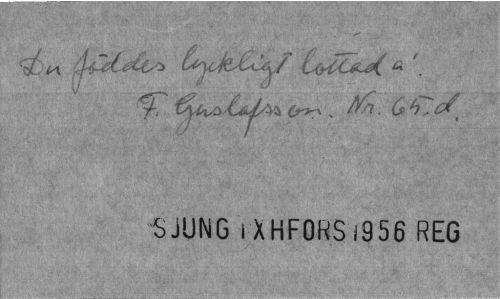 Du föddes lyckligt lottad a'.
F. Gustafsson. Nr. 65.d.
SJUNG I XHFORS 1956 REG